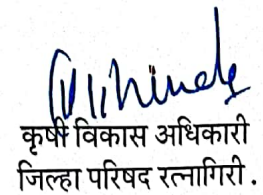 कृषी विकास अधिकारी
जिल्हा परिषद रत्नागिरी .